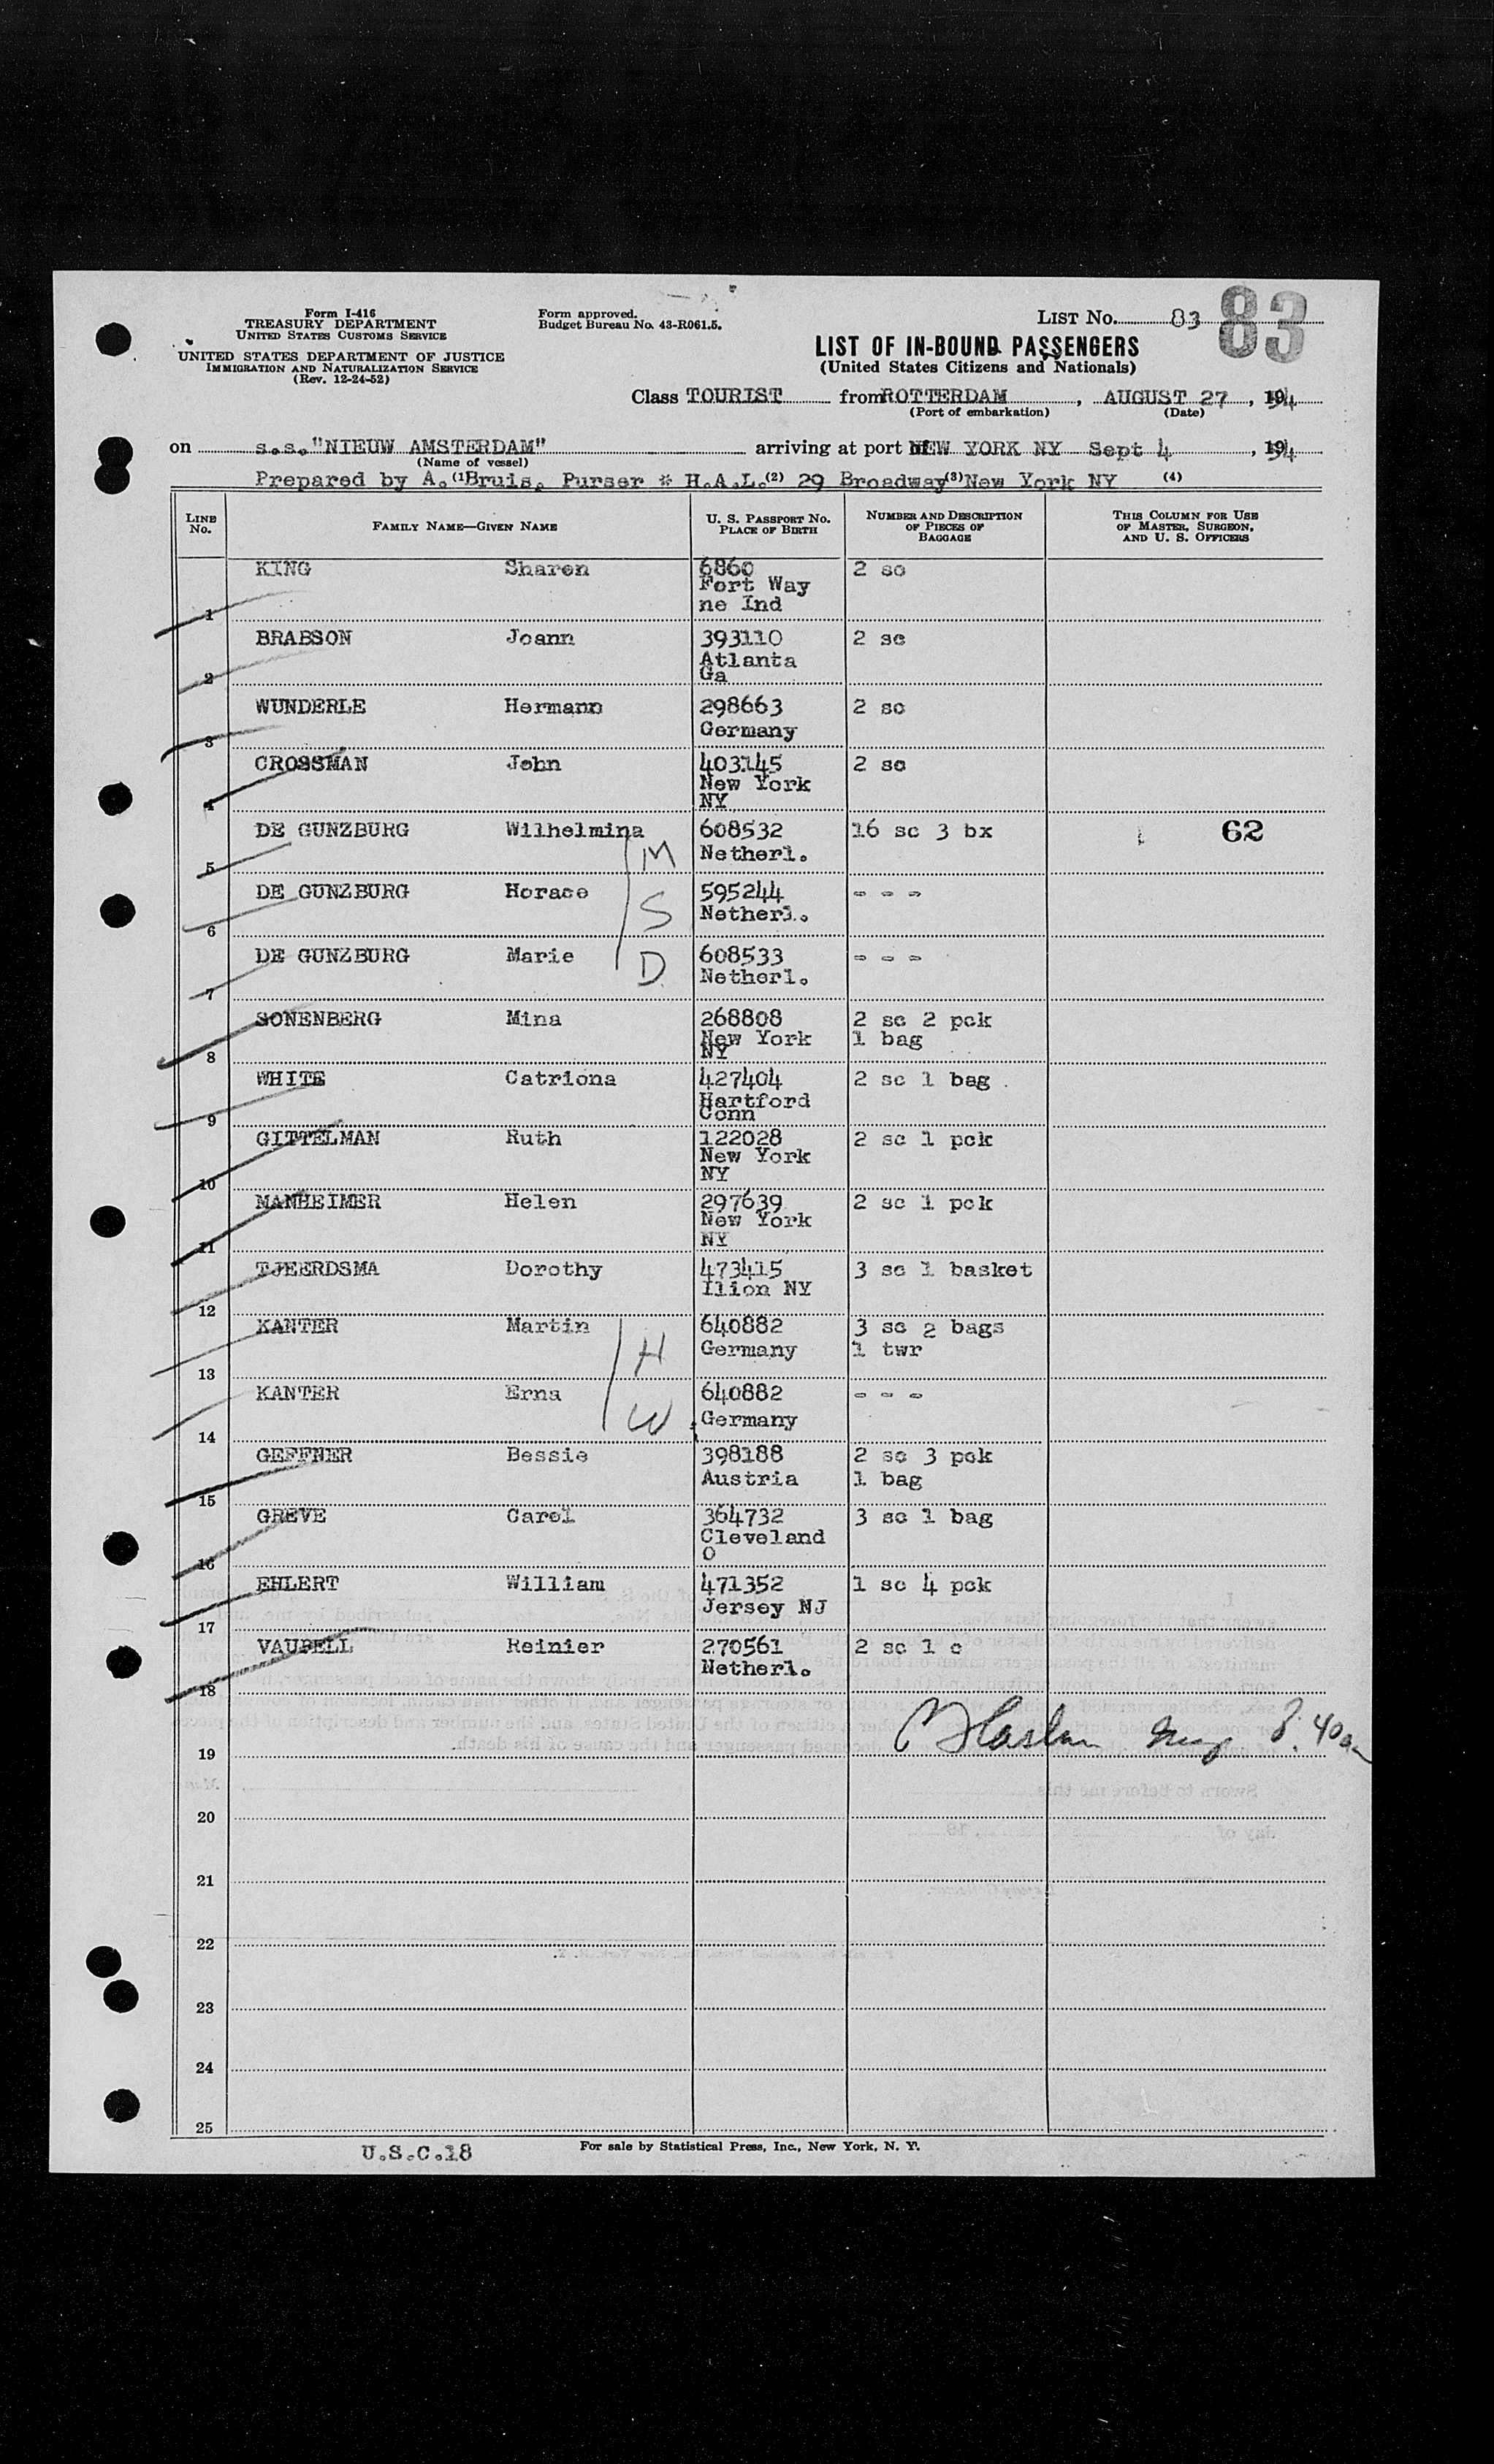 Form I-416
TREASURY DEPARTMENT
UNITED STATES CUSTOMS SERVICE
UNITED STATES DEPARTMENT OF JUSTICE
IMMIGRATION AND NATURALIZATION SERVICE
(Rev. 12-24-52)
Form approved.
Budget Bureau No. 43-R061.5.
LIST No. 83 83
LIST OF IN-BOUND PASSENGERS
(United States Citizens and Nationals)
Class TOURIST from ROTTERDAM, AUGUST 27, 1954
(Port of embarkation) (Date)
on s.s."NIEUW AMSTERDAM" arriving at port of NEW YORK NY Sept 4, 1954
(Name of vessel)
Prepared by A.(1)Bruis. Purser * H.A.L.(2) 29 Broadway(3)New York NY (4)
LINE No. FAMILY NAME—GIVEN NAME U. S. PASSPORT NO. PLACE OF BIRTH NUMBER AND DESCRIPTION OF PIECES OF BAGGAGE THIS COLUMN FOR USE OF MASTER, SURGEON, AND U. S. OFFICERS
KING Sharen 6860 2 sc
Fort Way
ne Ind
1
BRABSON Joann 393110 2 sc
Atlanta
Ga
2
WUNDERLE Hermann 298663 2 sc
Germany
3
CROSSMAN John 403145 2 sc
New York
NY
4
DE GUNZBURG Wilhelmina 608532 16 sc 3 bx 62
M Netherl.
5
DE GUNZBURG Horace 595244 - - -
S Netherl.
6
DE GUNZBURG Marie 608533 - - -
D Netherl.
7
SONENBERG Mina 268808 2 sc 2 pck
New York 1 bag
NY
8
WHITE Catriona 427404 2 sc 1 bag
Hartford
Conn
9
GITTELMAN Ruth 122028 2 sc 1 pck
New York
NY
10
MANHEIMER Helen 297639 2 sc 1 pck
New York
NY
11
TJEERDSMA Dorothy 473415 3 sc 1 basket
Ilion NY
12
KANTER Martin 640882 3 sc 2 bags
H Germany 1 twr
13
KANTER Erna 640882 - - -
W Germany
14
GEFFNER Bessie 398188 2 sc 3 pck
Austria 1 bag
15
GREVE Carol 364732 3 sc 1 bag
Cleveland
O
16
EHLERT William 471352 1 sc 4 pck
Jersey NJ
17
VAUPELL Reinier 270561 2 sc 1 c
Netherl.
18
8:40am
19
20
21
22
23
24
25
U.S.C.18
For sale by Statistical Press, Inc., New York, N. Y.